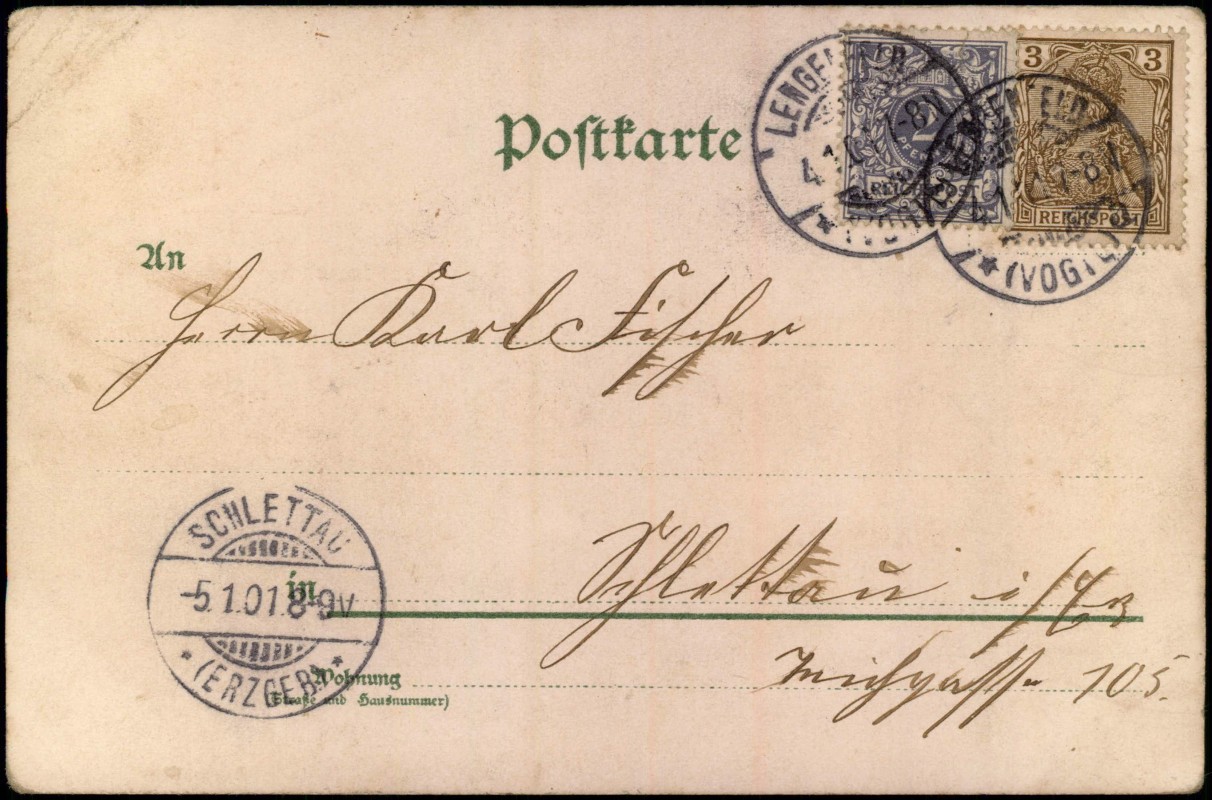 Postkarte
3 3
2
REICHSPOST
REICHSPOST
LENGENFELD
4.1.01 -8N
(VOGTL
LENGENFELD
4.1. -8N
(VOGTL
An
Herrn Karl Fischer
in
Schlettau i/Erz
SCHLETTAU
-5.1.01.8-9V
(ERZGEB)
Wohnung
(Straße und Hausnummer)
105.